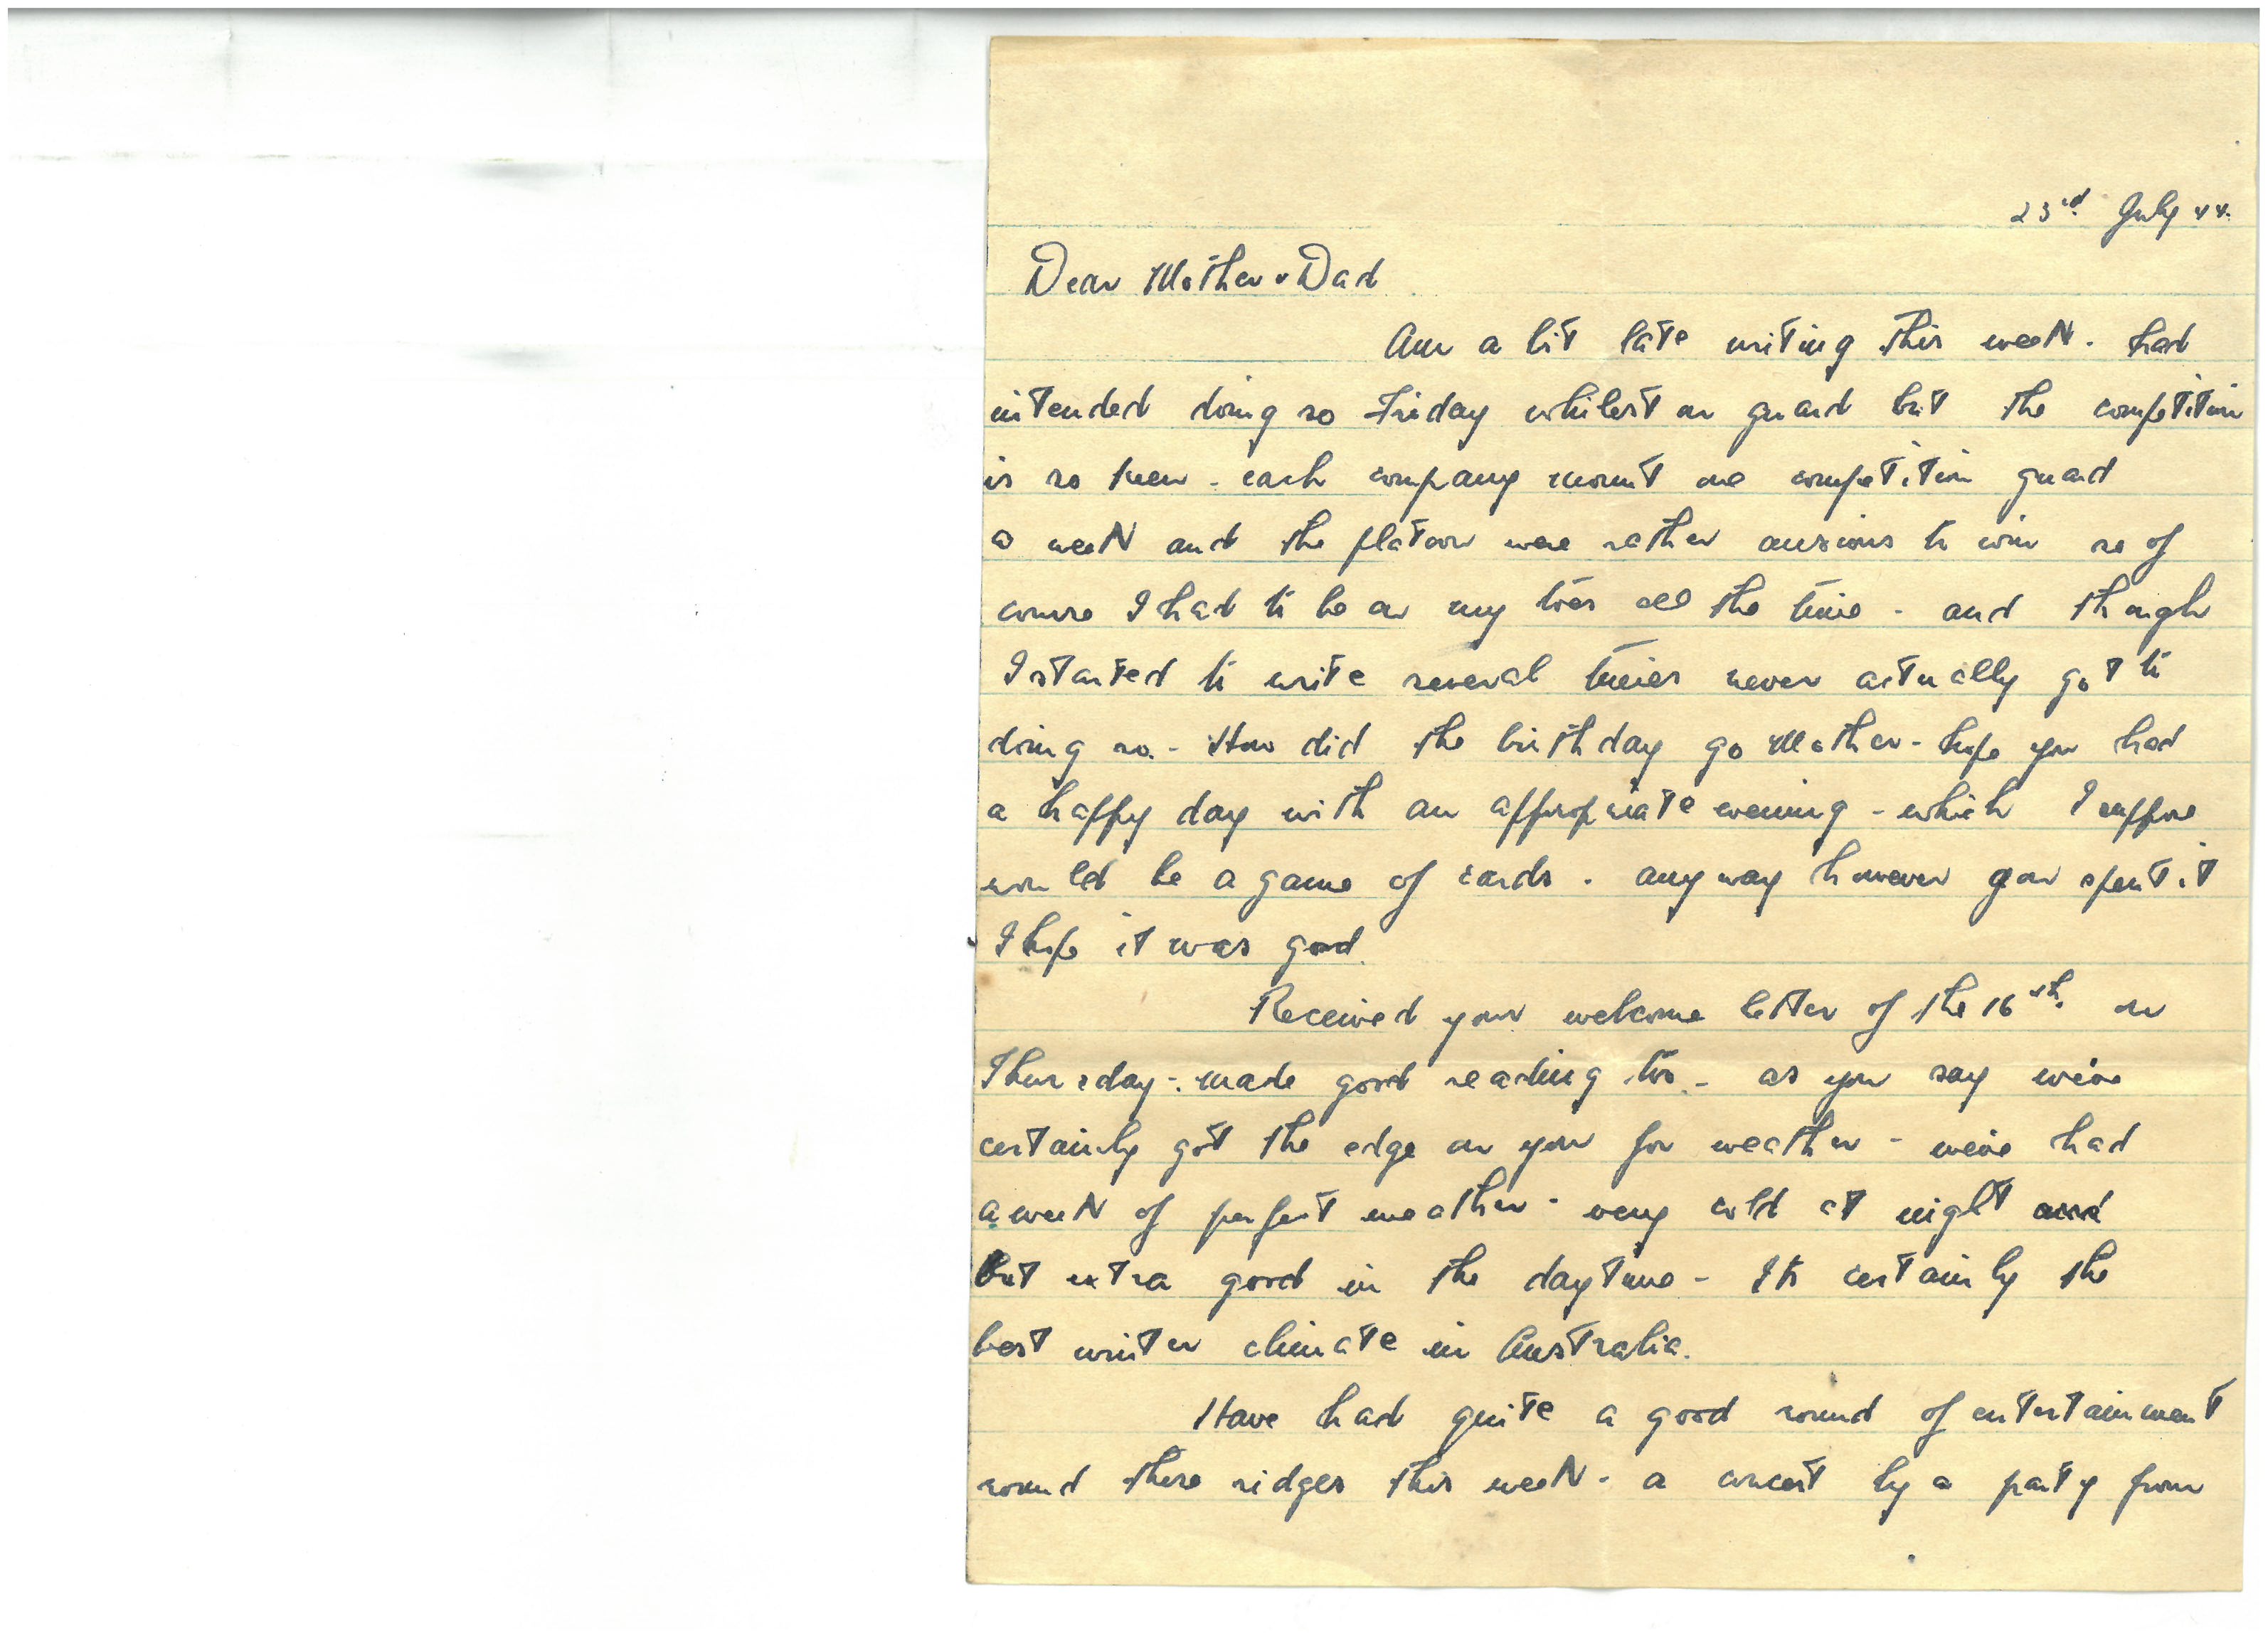 23rd. July 44.
Dear Mother & Dad
Am a bit late writing this week - had
intended doing so Friday whilest on guard but the competition
is so keen - each company mount one competition guard
a week and the platoon were rather anxious to win so of
course I had to be on my toes all the time - and though
I started to write several times never actually got to
doing so. - How did the birthday go Mother - hope you had
a happy day with an appropriate evening - which I suppose
would be a game of cards. anyway however you spent it
I hope it was good.
Received your welcome letter of the 16th. on
Thursday - made good reading too - as you say we've
certainly got the edge on you for weather - we've had
a week of perfect weather - very cold at night and
but extra good in the daytime - Its certainly the
best winter climate in Australia.
Have had quite a good round of entertainment
round these ridges this week - a concert by a party from